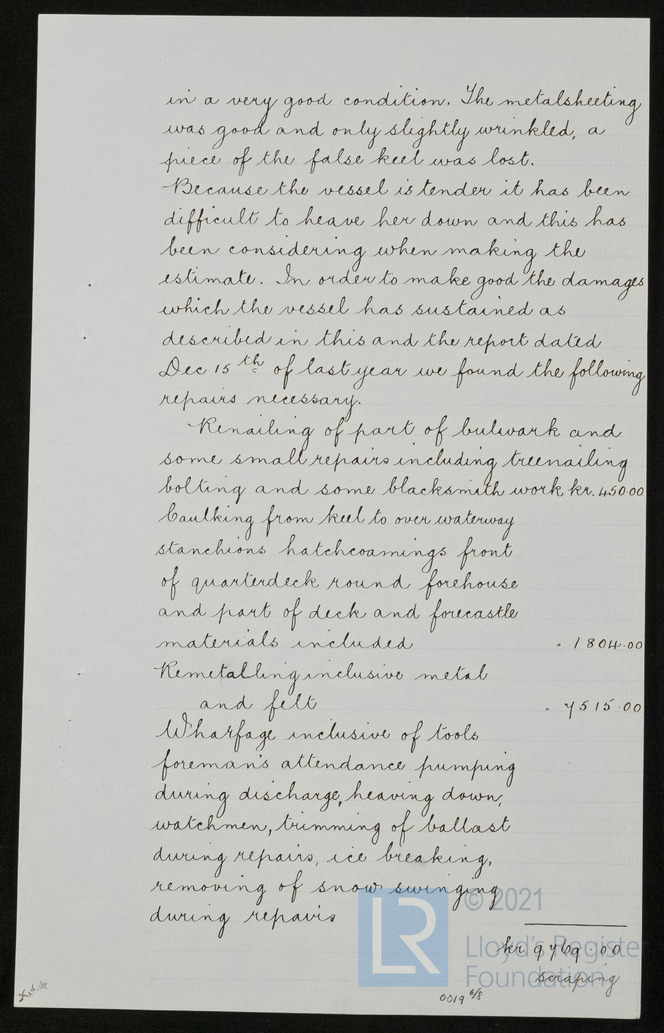 in a very good condition. The metalsheeting
was good and only slightly wrinkled, a
piece of the false keel was lost.
Because the vessel is tender it has been
difficult to heave her down and this has
been considering when making the
estimate. In order to make good the damages
which the vessel has sustained as
described in this and the report dated
Dec 15th of last year we found the following
repairs necessary.
Renailing of part of bulwark and
some small repairs including treenailing
bolting and some blacksmith work kr. 450.00
Caulking from keel to over waterway
stanchions hatchcoamings front
of quarterdeck round forehouse
and part of deck and forecastle
materials included " 1804.00
Remetalling inclusive metal
and felt " 7515.00
Wharfage inclusive of tools
foreman's attendance pumping
during discharge, heaving down,
watchmen, trimming of ballast
during repairs, ice breaking,
removing of snow swinging
during repairs
kr 9769.00
scraping
0019 6/8
LR
© 2021
Lloyd's Register
Foundation